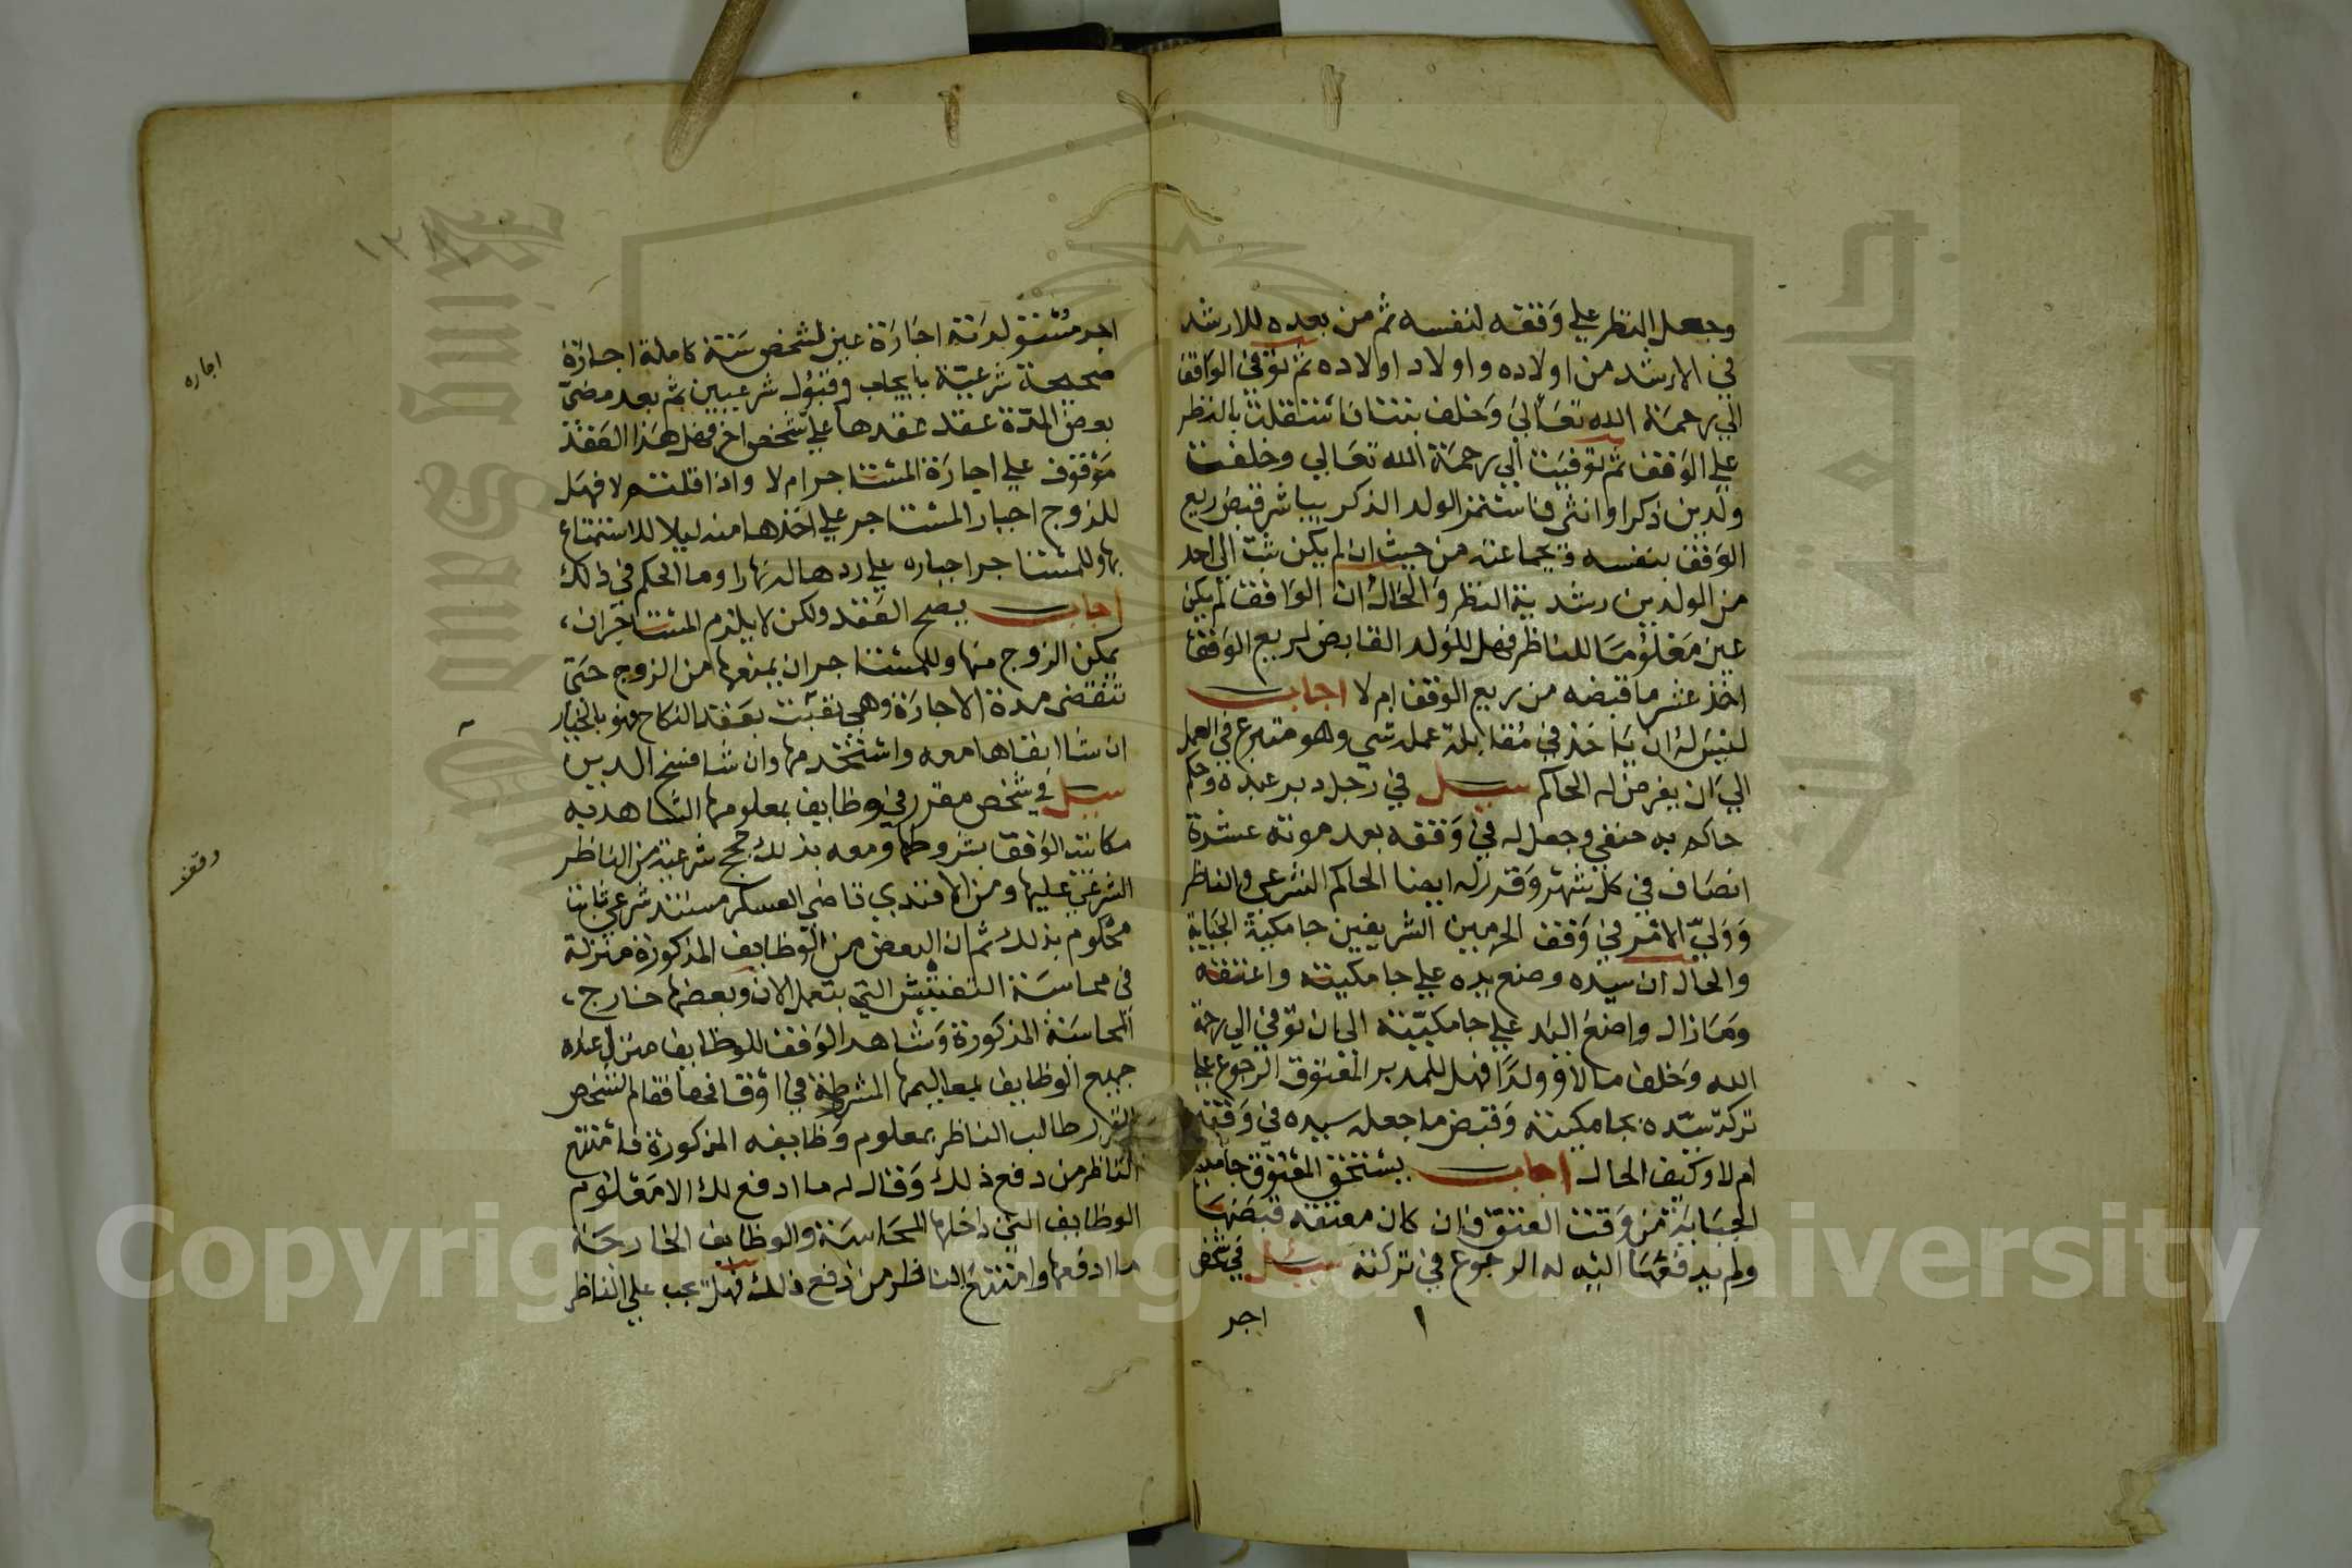 وجعل النظر علي وقفه لنفسه ثم من بعده للارشد
في الارشد من اولاده واولاد اولاده ثم توفي الواقف
الي رحمة الله تعالي وخلف بنتا فاستقلت بالنظر
علي الوقف ثم توفيت الي رحمة الله تعالي وخلفت
ولدين ذكرا وانثي فاستمر الولد الذكر يباشر قبض ريع
الوقف بنفسه وبجماعته من حيث ان لم يكن ثبت الي احد
من الولدين رشدية النظر والحال ان الواقف لم يكن
عين معلوما للناظر فهل للولد القابض لريع الوقف
اخذ عشر ما قبضه من ريع الوقف ام لا اجاب
ليس له ان ياخذ في مقابلة عمله شي وهو متبرع في العمل
الي ان يفرض له الحاكم سيل في رجل دبر عبده وحكم
حاكم به حنفي وجعل له في وقفه بعد موته عشرة
انصاف في كل شهر وقرر له ايضا الحاكم الشرعي والناظر
وولي الامر في وقف الحرمين الشريفين جامكية الجباية
والحال ان سيده وضع يده علي جامكيته واعتقه
ومازال واضع اليد علي جامكيته الي ان توفي الي رحمة
الله وخلف مالا وولدا فهل للمدبر المعتوق الرجوع علي
تركة سيده بجامكيته وقبض ما جعل سيده في وقفه
ام لا وكيف الحال اجاب يستحق المعتوق جامكية
الجباية من وقت العتق فان كان معتقه قبضها
ولم يدفعها اليه له الرجوع في تركته سيل في شخص
اجر
١٣٨
اجر مستولدته اجارة عين لشخص سنة كاملة اجارة
صحيحة شرعية بايجاب وقبول شرعيين ثم بعد مضي
بعض المدة عقد عقدها علي شخص اخر فهل هذا العقد
موقوف علي اجارة المستاجر ام لا واذا قلتم لا فهل
للزوج اجبار المستاجر علي اخذها منه ليلا للاستمتاع
بها وللمستاجر اجباره علي ردها له نهارا وما الحكم في ذلك
اجاب يصح العقد ولكن لا يلزم المستاجر ان
يمكن الزوج منها وللمستاجر ان يمنعها من الزوج حتي
تنقضي مدة الاجارة وهي تعيبت بعقد النكاح فهو بالخيار
ان شا ابقاها معه واستخدمها وان شا فسخ
سيل في شخص مقرر في وظايف بمعلومها الشاهد به
مكاتيب الوقف بشروطها ومعه بذلك حجج شرعية من الناظر
الشرعي عليها ومن الافندي قاضي العسكر مستند شرعي ثابت
محكوم بذلك ثم ان البعض من الوظايف المذكورة منزلة
في محاسبة التفتيش التي بتعمل الان وبعضها خارج
المحاسبة المذكورة وشاهد الوقف للوظايف
جميع الوظايف بمعاليمها المشروطة في اوقافها فقام الشخص
المقرر طالب الناظر بمعلوم وظايفه المذكورة فامتنع
الناظر من دفع ذلك وقال له ما ادفع لك الا معلوم
الوظايف التي داخلها المحاسبة والوظايف الخارجة
ما ادفعها وامتنع الناظر من دفع ذلك فهل يجب علي الناظر
اجاره
وقف